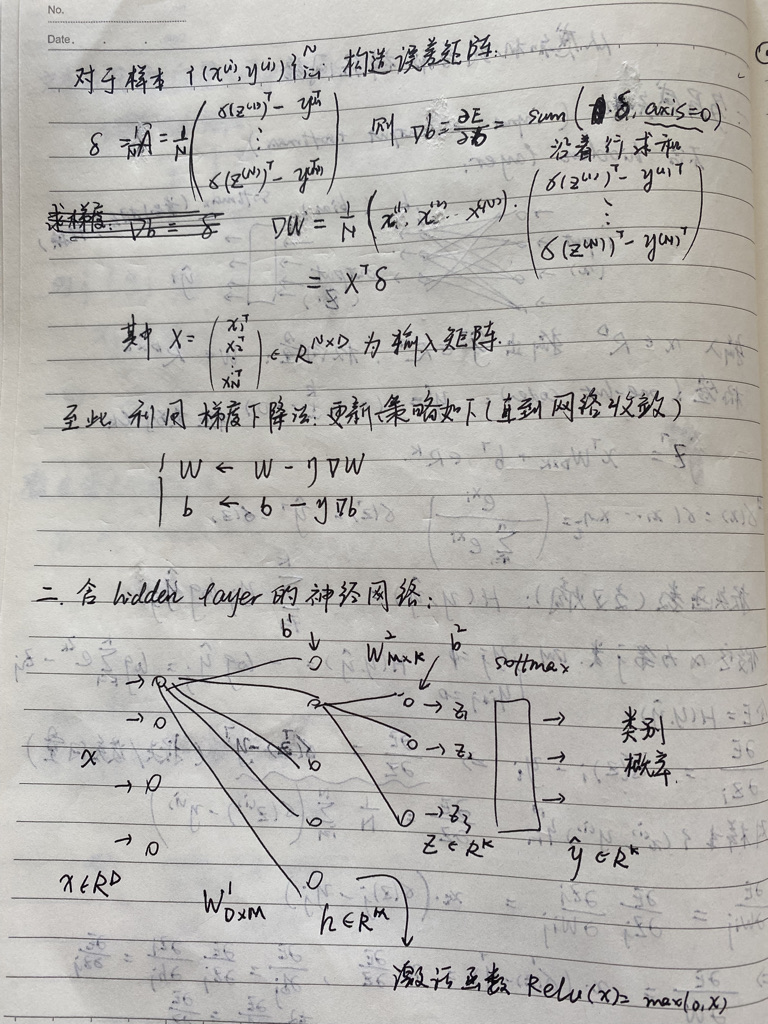 No.
Date.
对于样本 {(x⁽ⁱ⁾, y⁽ⁱ⁾)}ᵢ₌₁ᴺ 构造误差矩阵.
δ = 1/N A = 1/N (σ(z⁽¹⁾)ᵀ - y⁽¹⁾ᵀ ⋮ σ(z⁽ᴺ⁾)ᵀ - y⁽ᴺ⁾ᵀ) 则 ∇b = ∂E/∂b = sum(δ, axis=0)
沿着行求和
求梯度: ∇b = δ ∇W = 1/N (x⁽¹⁾, x⁽²⁾ ... x⁽ᴺ⁾) · (σ(z⁽¹⁾)ᵀ - y⁽¹⁾ᵀ ⋮ σ(z⁽ᴺ⁾)ᵀ - y⁽ᴺ⁾ᵀ)
= Xᵀδ
其中 X = (x₁ᵀ x₂ᵀ ⋮ x_Nᵀ) ∈ R^{N×D} 为输入矩阵.
至此 利用梯度下降法: 更新策略如下(直到网络收敛)
W ← W - η∇W
b ← b - η∇b
二. 含 hidden layer 的神经网络:
b¹ W²_{M×K} b² softmax
→ z₁
→ z₂
→ z₃
x
类别
概率.
z ∈ Rᴷ
ŷ ∈ Rᴷ
x ∈ Rᴰ W¹_{D×M} h ∈ Rᴹ
激活函数 Relu(x) = max(0, x)